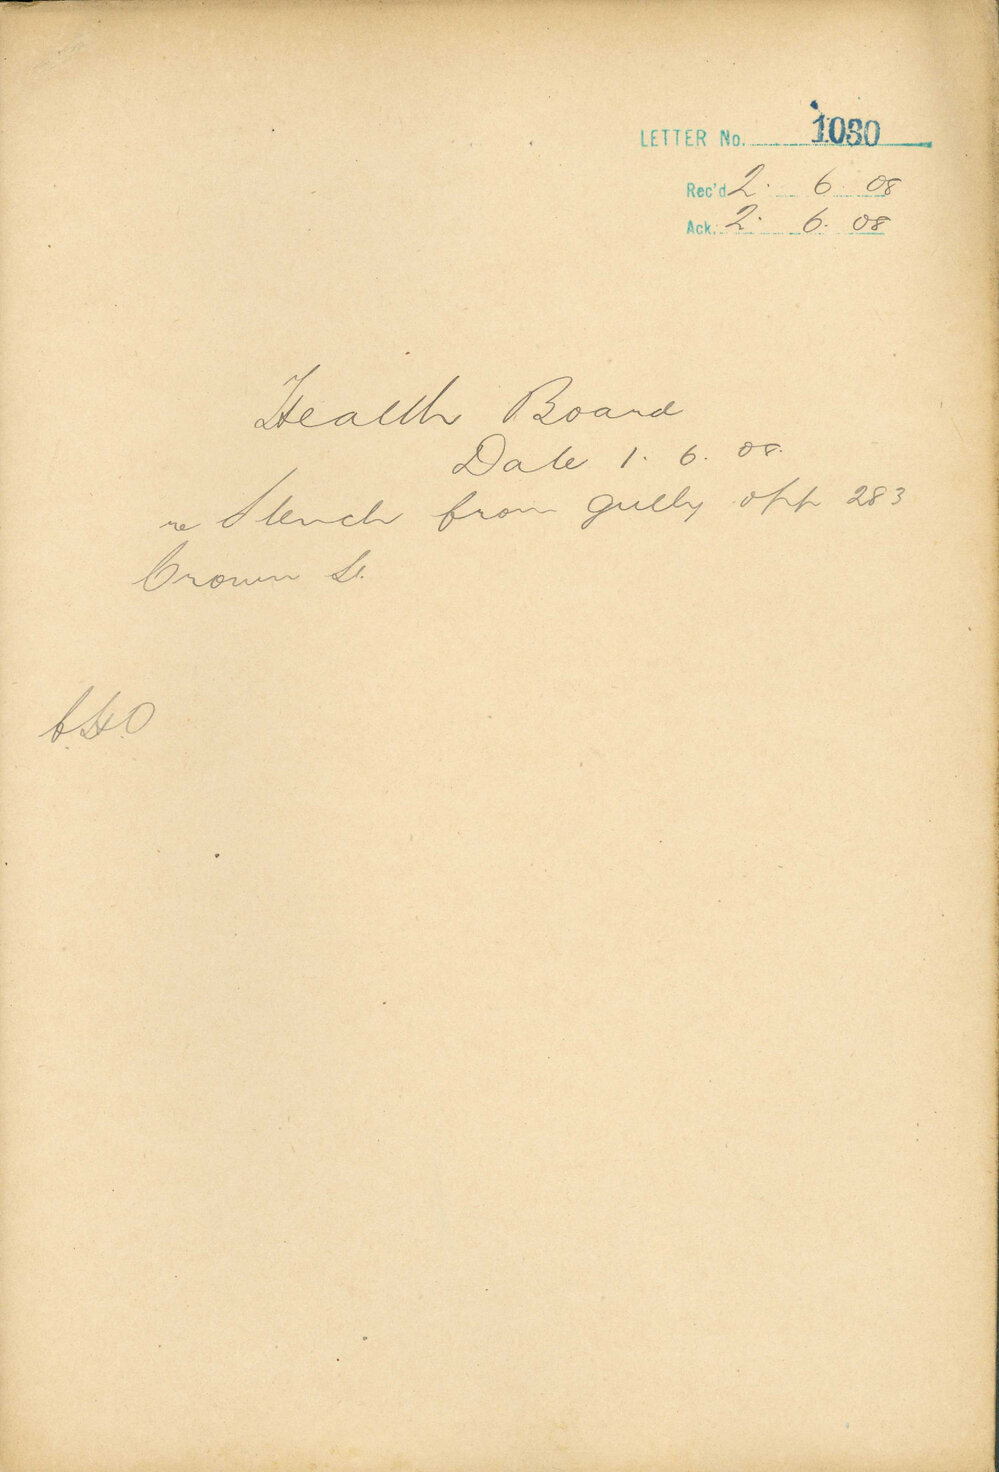 LETTER No. 1030
Rec'd 2. 6. 08
Ack. 2. 6. 08
Health Board
Date 1. 6. 08.
re Stench from gully opp 283
Crown St.
C.H.O